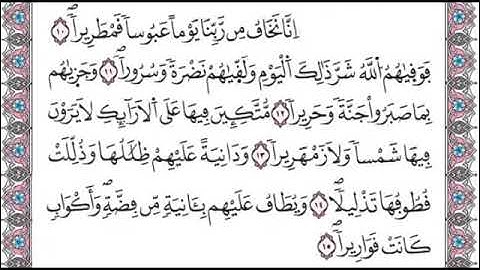 إِنَّا نَخَافُ مِن رَّبِّنَا يَوْماً عَبُوساً قَمْطَرِيراًۖ ۝١٠
فَوَقَيٰهُمُ اُ۬للَّهُ شَرَّ ذَٰلِكَ اَ۬لْيَوْمِ وَلَقَّيٰهُمْ نَضْرَةً وَسُرُوراًۖ ۝١١ وَجَزَيٰهُم
بِمَا صَبَرُواْ جَنَّةً وَحَرِيراً ۝١٢ مُّتَّكِـِٕينَ فِيهَا عَلَى اَ۬لَارَآئِكِ لَا يَرَوْنَ
فِيهَا شَمْساً وَلَا زَمْهَرِيراًۖ ۝١٣ وَدَانِيَةً عَلَيْهِمْ ظِلَٰلُهَا وَذُلِّلَتْ
قُطُوفُهَا تَذْلِيلاًۖ ۝١٤ وَيُطَافُ عَلَيْهِم بِـَٔانِيَةٍ مِّن فِضَّةٍۖ وَأَكْوَابٍ
كَانَتْ قَوَارِيراًۖ ۝١٥